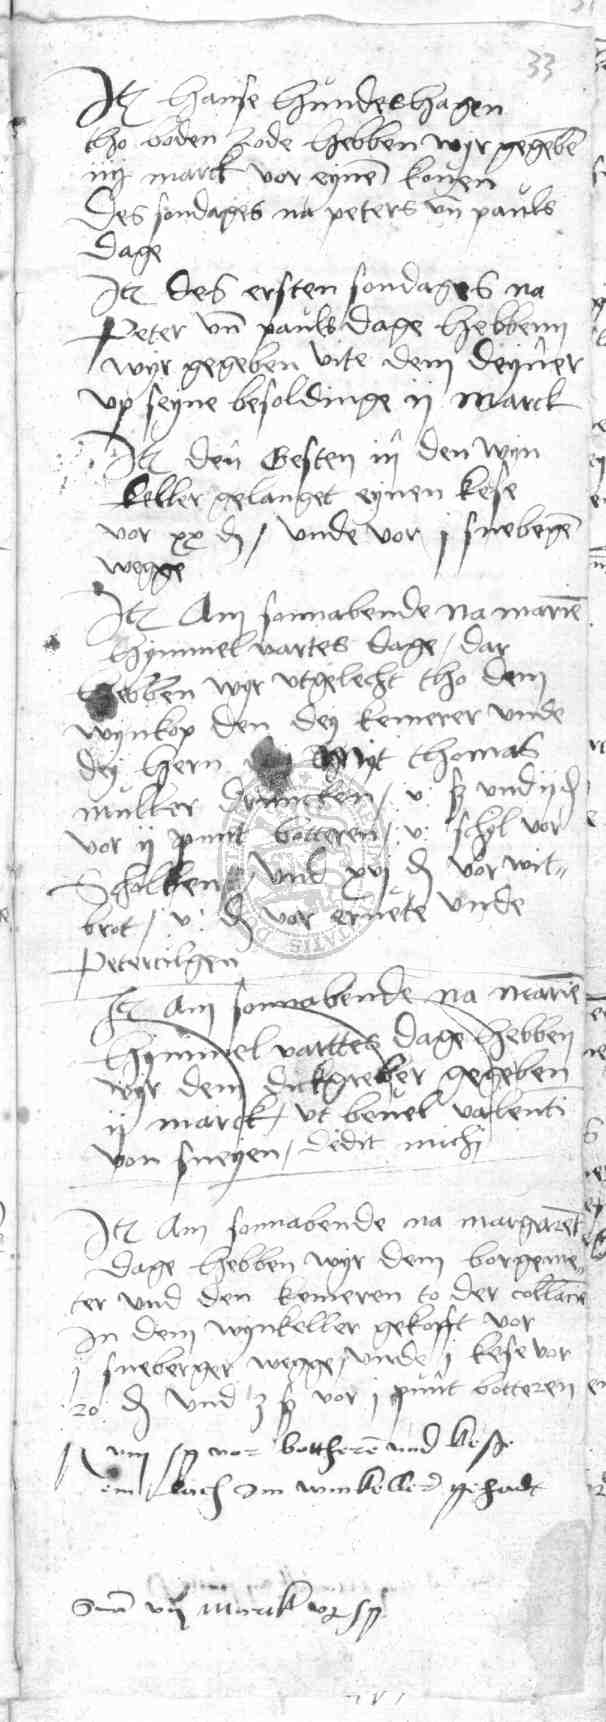 33
Itē hanse hundeshagen
tho boden rode hebben wyr gegebē
iiij marck vor eynē kouen
des sondages na peters vn̄ pauls
dage
Itē des ersten sondages na
Peter vn̄ pauls dage hebbenn
wyr gegeben vite dem deyner
vp seyne besoldinge ij marck
Itē den Gesten in den wyn
keller gelanget eynen kese
vor xx d / vnde vor j snebergē
wegge
Itē Am sonnabende na marīe
hymmel vartes dage / dar
hebben wyr vtgelecht tho dem
wynkop den dey kemerer vnde
dey hern myt thomas
muller druncken / v ß vnd ij d
vor ij punt botteren / v schyl vor
Schulken / vnd xvj d vor wit=
brot / v d vor eruete vnde
Petercilgen
Itē Am sonnabende na marīe
hymmel varttes dage hebben
wyr dem dickgreber gegeben
ij marck / vt beuel valentī
von sneyen / dedit michi
Itē Am sonnabende na margaretē
dage hebben wyr dem borgeme=
ster vnd den kemeren to der collacīe
In dem wynkeller gekofft vor
j sneberger wegge / vnde j kese vor
20 d vnd 3 ß vor j punt botteren
viij ß vor bottherē und kesse
im winkeller gehadt
Sūa vij Marck